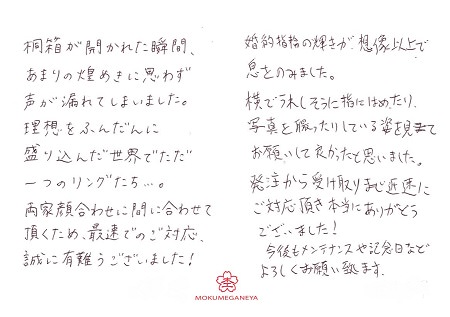 桐箱が開かれた瞬間、
あまりの煌めきに思わず
声が漏れてしまいました。
理想をふんだんに
盛り込んだ世界でただ
一つのリングたち…。
両家顔合わせに間に合わせて
頂くため、最速でのご対応、
誠に有難うございました!
婚約指輪の輝きが、想像以上で
息をのみました。
横でうれしそうに指にはめたり、
写真を撮ったりしている姿を見て
お願いして良かったと思いました。
発注から受け取りまで迅速に
ご対応頂き本当にありがとう
ございました!
今後もメンテナンスや記念日など
よろしくお願い致します.
MOKUMEGANEYA